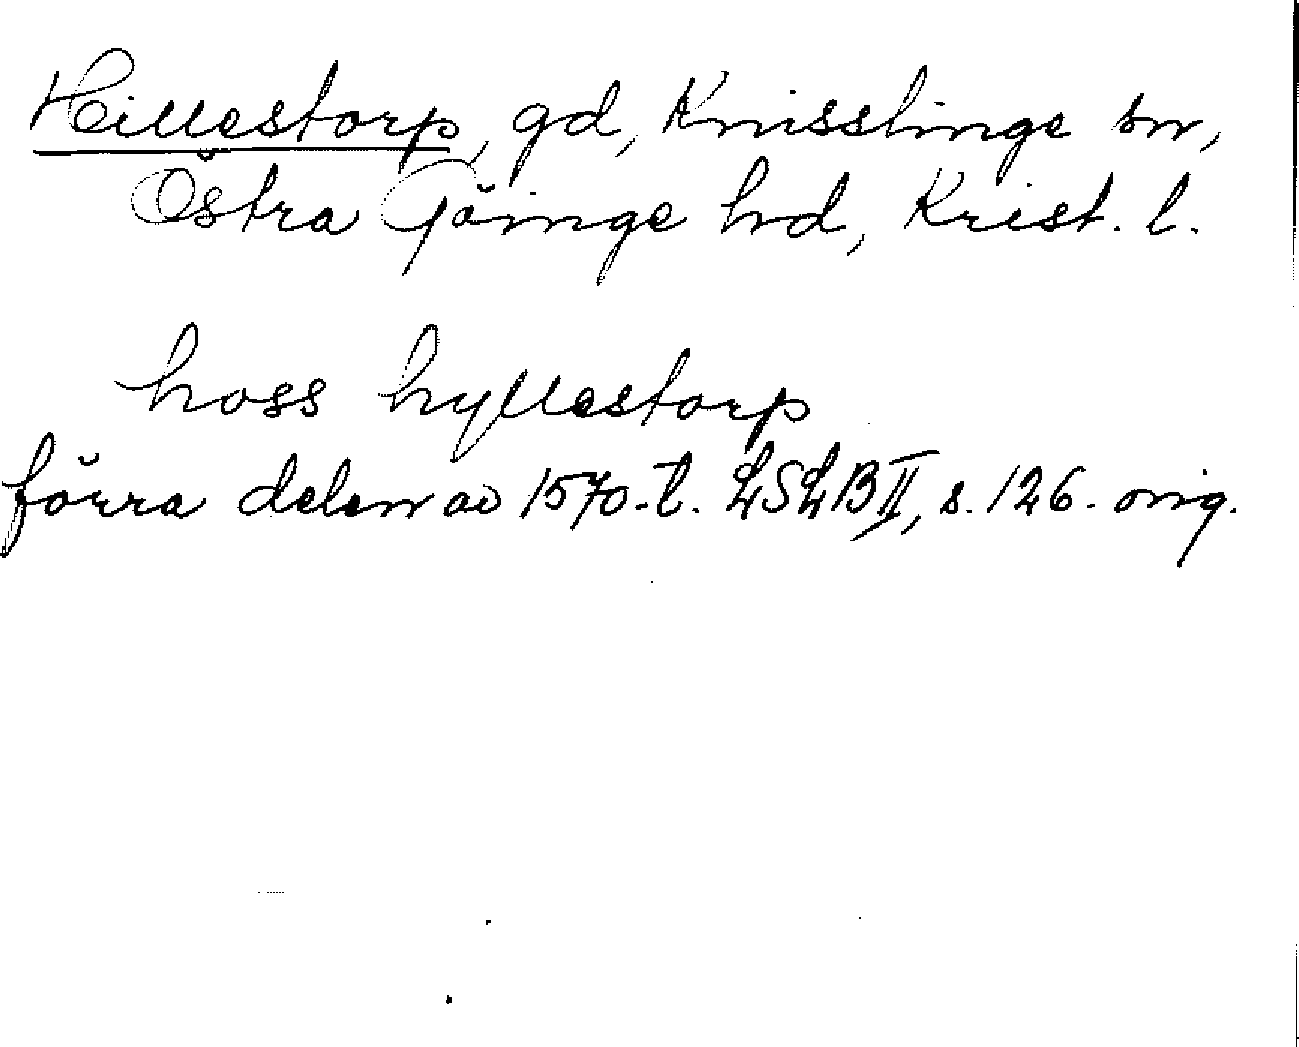 Hillestorp, gd, Knisslinge sn,
Östra Göinge hd, Krist. l.
hoss hyllestorp
förra delen av 1570-t. LSLB II, s. 126. orig.